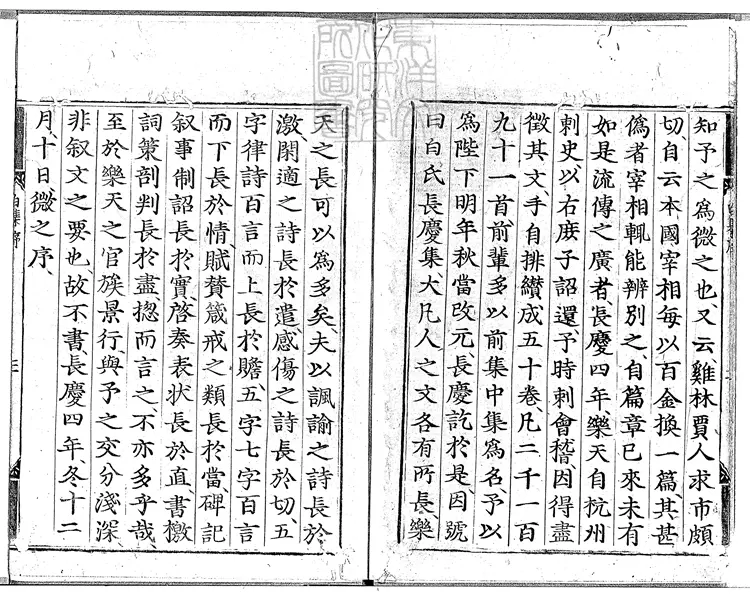 知予之為微之也、又云、雞林賈人求市頗
切、自云本國宰相每以百金換一篇、其甚
偽者宰相輒能辨別之、自篇章已來未有
如是流傳之廣者、長慶四年、樂天自杭州
刺史以右庶子詔還、予時刺會稽、因得盡
徵其文、手自排纘成五十卷、凡二千一百
九十一首前輩多以前集中集為名、予以
為陛下明年秋當改元、長慶訖於是、因號
曰白氏長慶集、大凡人之文各有所長、樂
天之長可以為多矣、夫以諷諭之詩長於
激閑適之詩長於遣、感傷之詩長於切五
字律詩百言而上長於贍、五字七字百言
而下長於情、賦贊箴戒之類長於當、碑記
敘事制詔長於實、啓奏表狀長於直、書檄
詞策剖判長於盡、揔而言之、不亦多乎哉、
至於樂天之官族景行、與予之交分淺深
非敘文之要也、故不書、長慶四年、冬十二
月、十日、微之序、
白集序
三